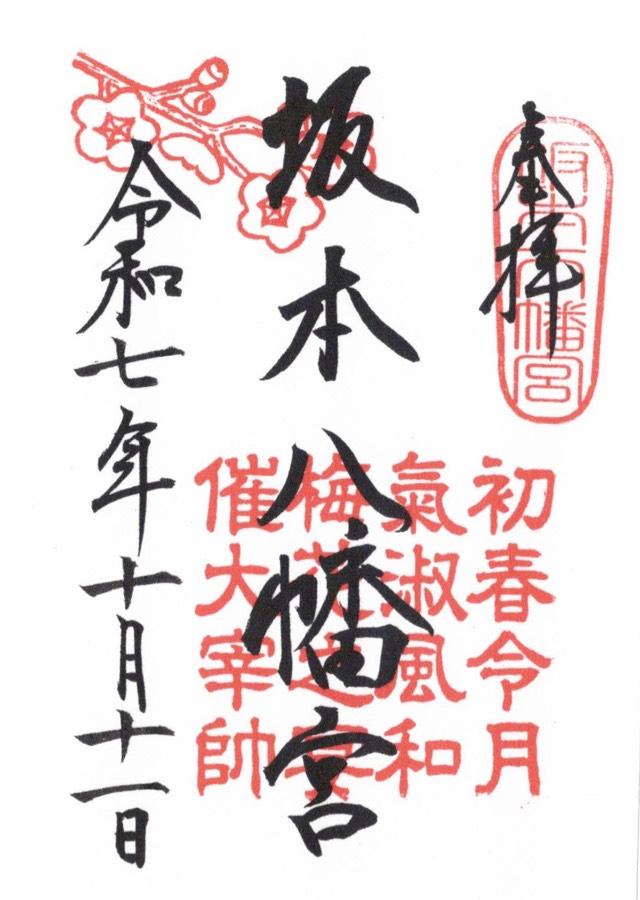 奉拝
坂本八幡宮
初春令月
氣淑風和
梅花之宴
催大宰帥
坂本八幡宮
令和七年十月十一日